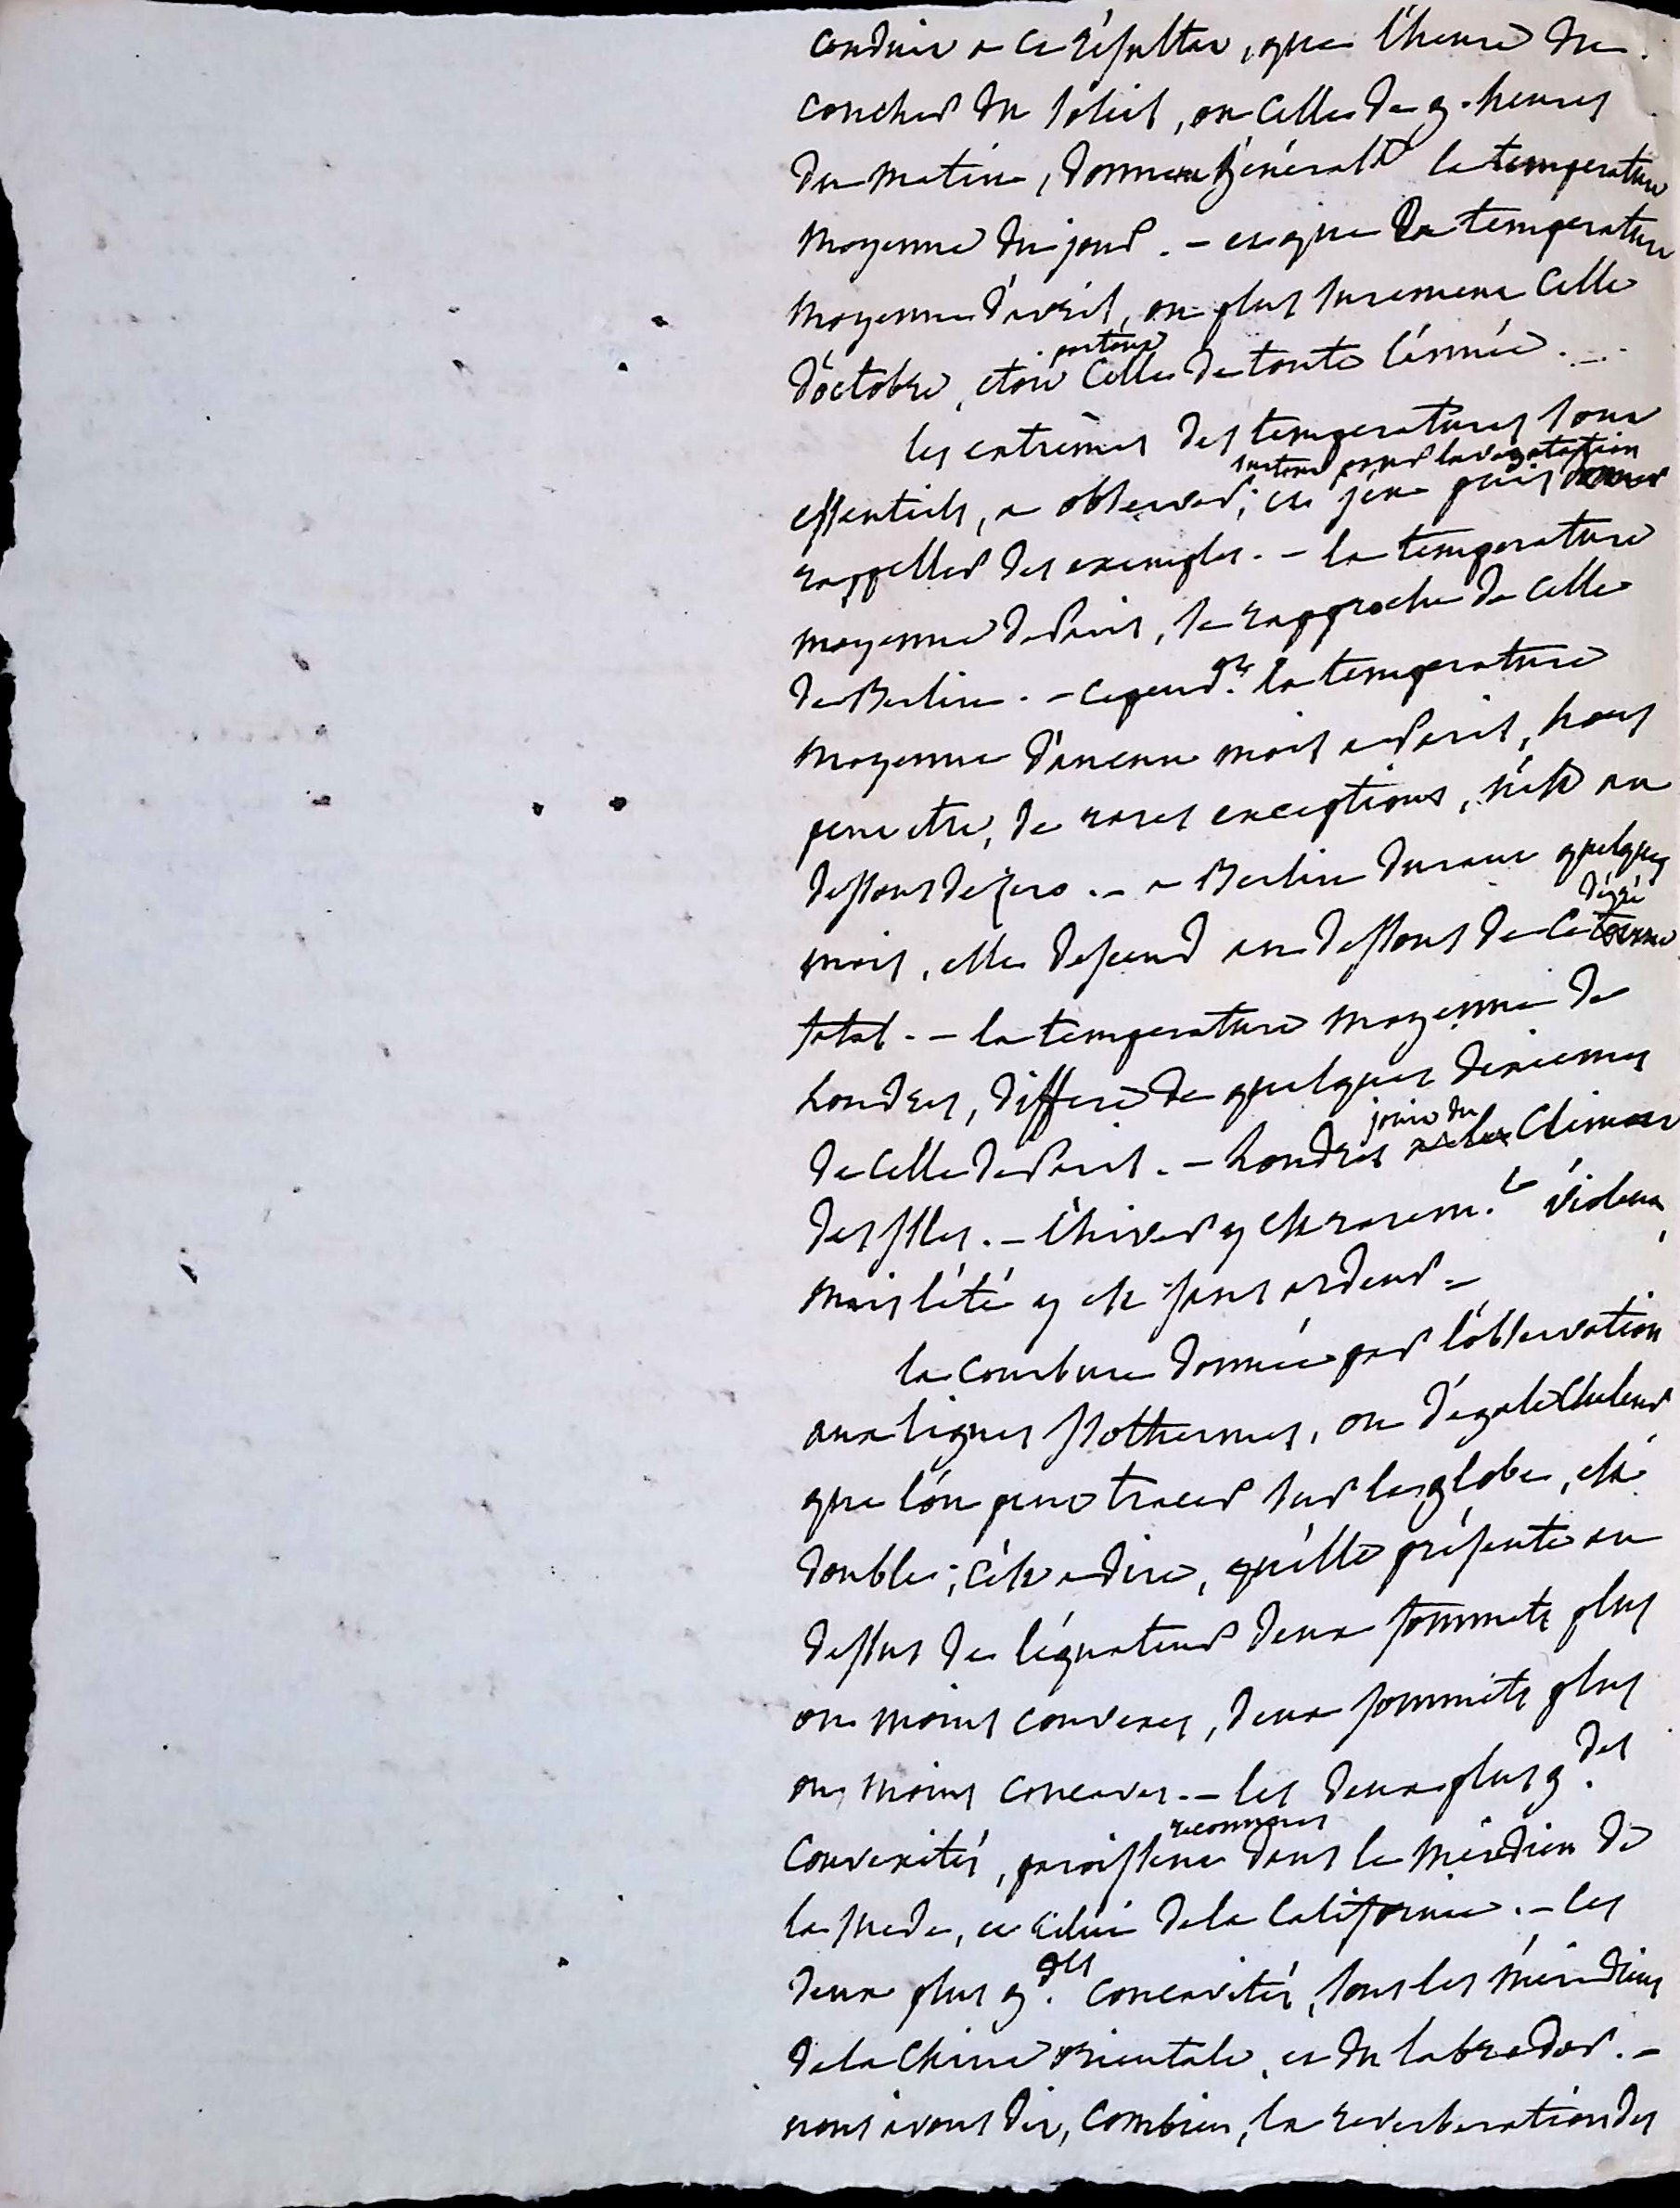 conduit a ce résultat, que l'heure du
coucher du soleil, ou celle de 9. heures
du matin, donnent généralt la temperature
moyenne du jour. – et que la temperature
moyenne d'avril, ou plus surement celle
partout
d'octobre, étoit celle de toute l'année. –
les extrèmes des temperatures sont
surtout pour la végétation
essentiels, a observer; et j'en puis
rappeller des exemples. – la temperature
moyenne de Paris, se rapproche de celle
de Berlin. – cepend.nt la temperature
moyenne d'aucun mois a Paris, hors
peut etre, de rares exceptions, n'est au
dessous de zero. – a Berlin durant quelques
dégré
mois, elle descend au dessous de ce terme
fatal. – la temperature moyenne de
Londres, differe de quelques dixiemes
jouit du
de celle de Paris. – Londres climat
des isles. – l'hiver y est rarem.t violent,
mais l'été y est sans ardeur –
la courbure donnée par l'observation
aux lignes isothermes, ou d'égale chaleur
que l'on peut tracer sur le globe, est
double; c'est a dire, qu'elle présente au
dessus de l'équateur deux sommets plus
ou moins convexes, deux sommets plus
ou moins concaves. – les deux plus g.des
reconnues
convexités, paroissent dans le méridien de
la suede, et celui de la Californie. – les
deux plus g.des concavités, sous les méridiens
de la Chine orientale, et du labrador. –
nous avons dit, combien, la reverberation des